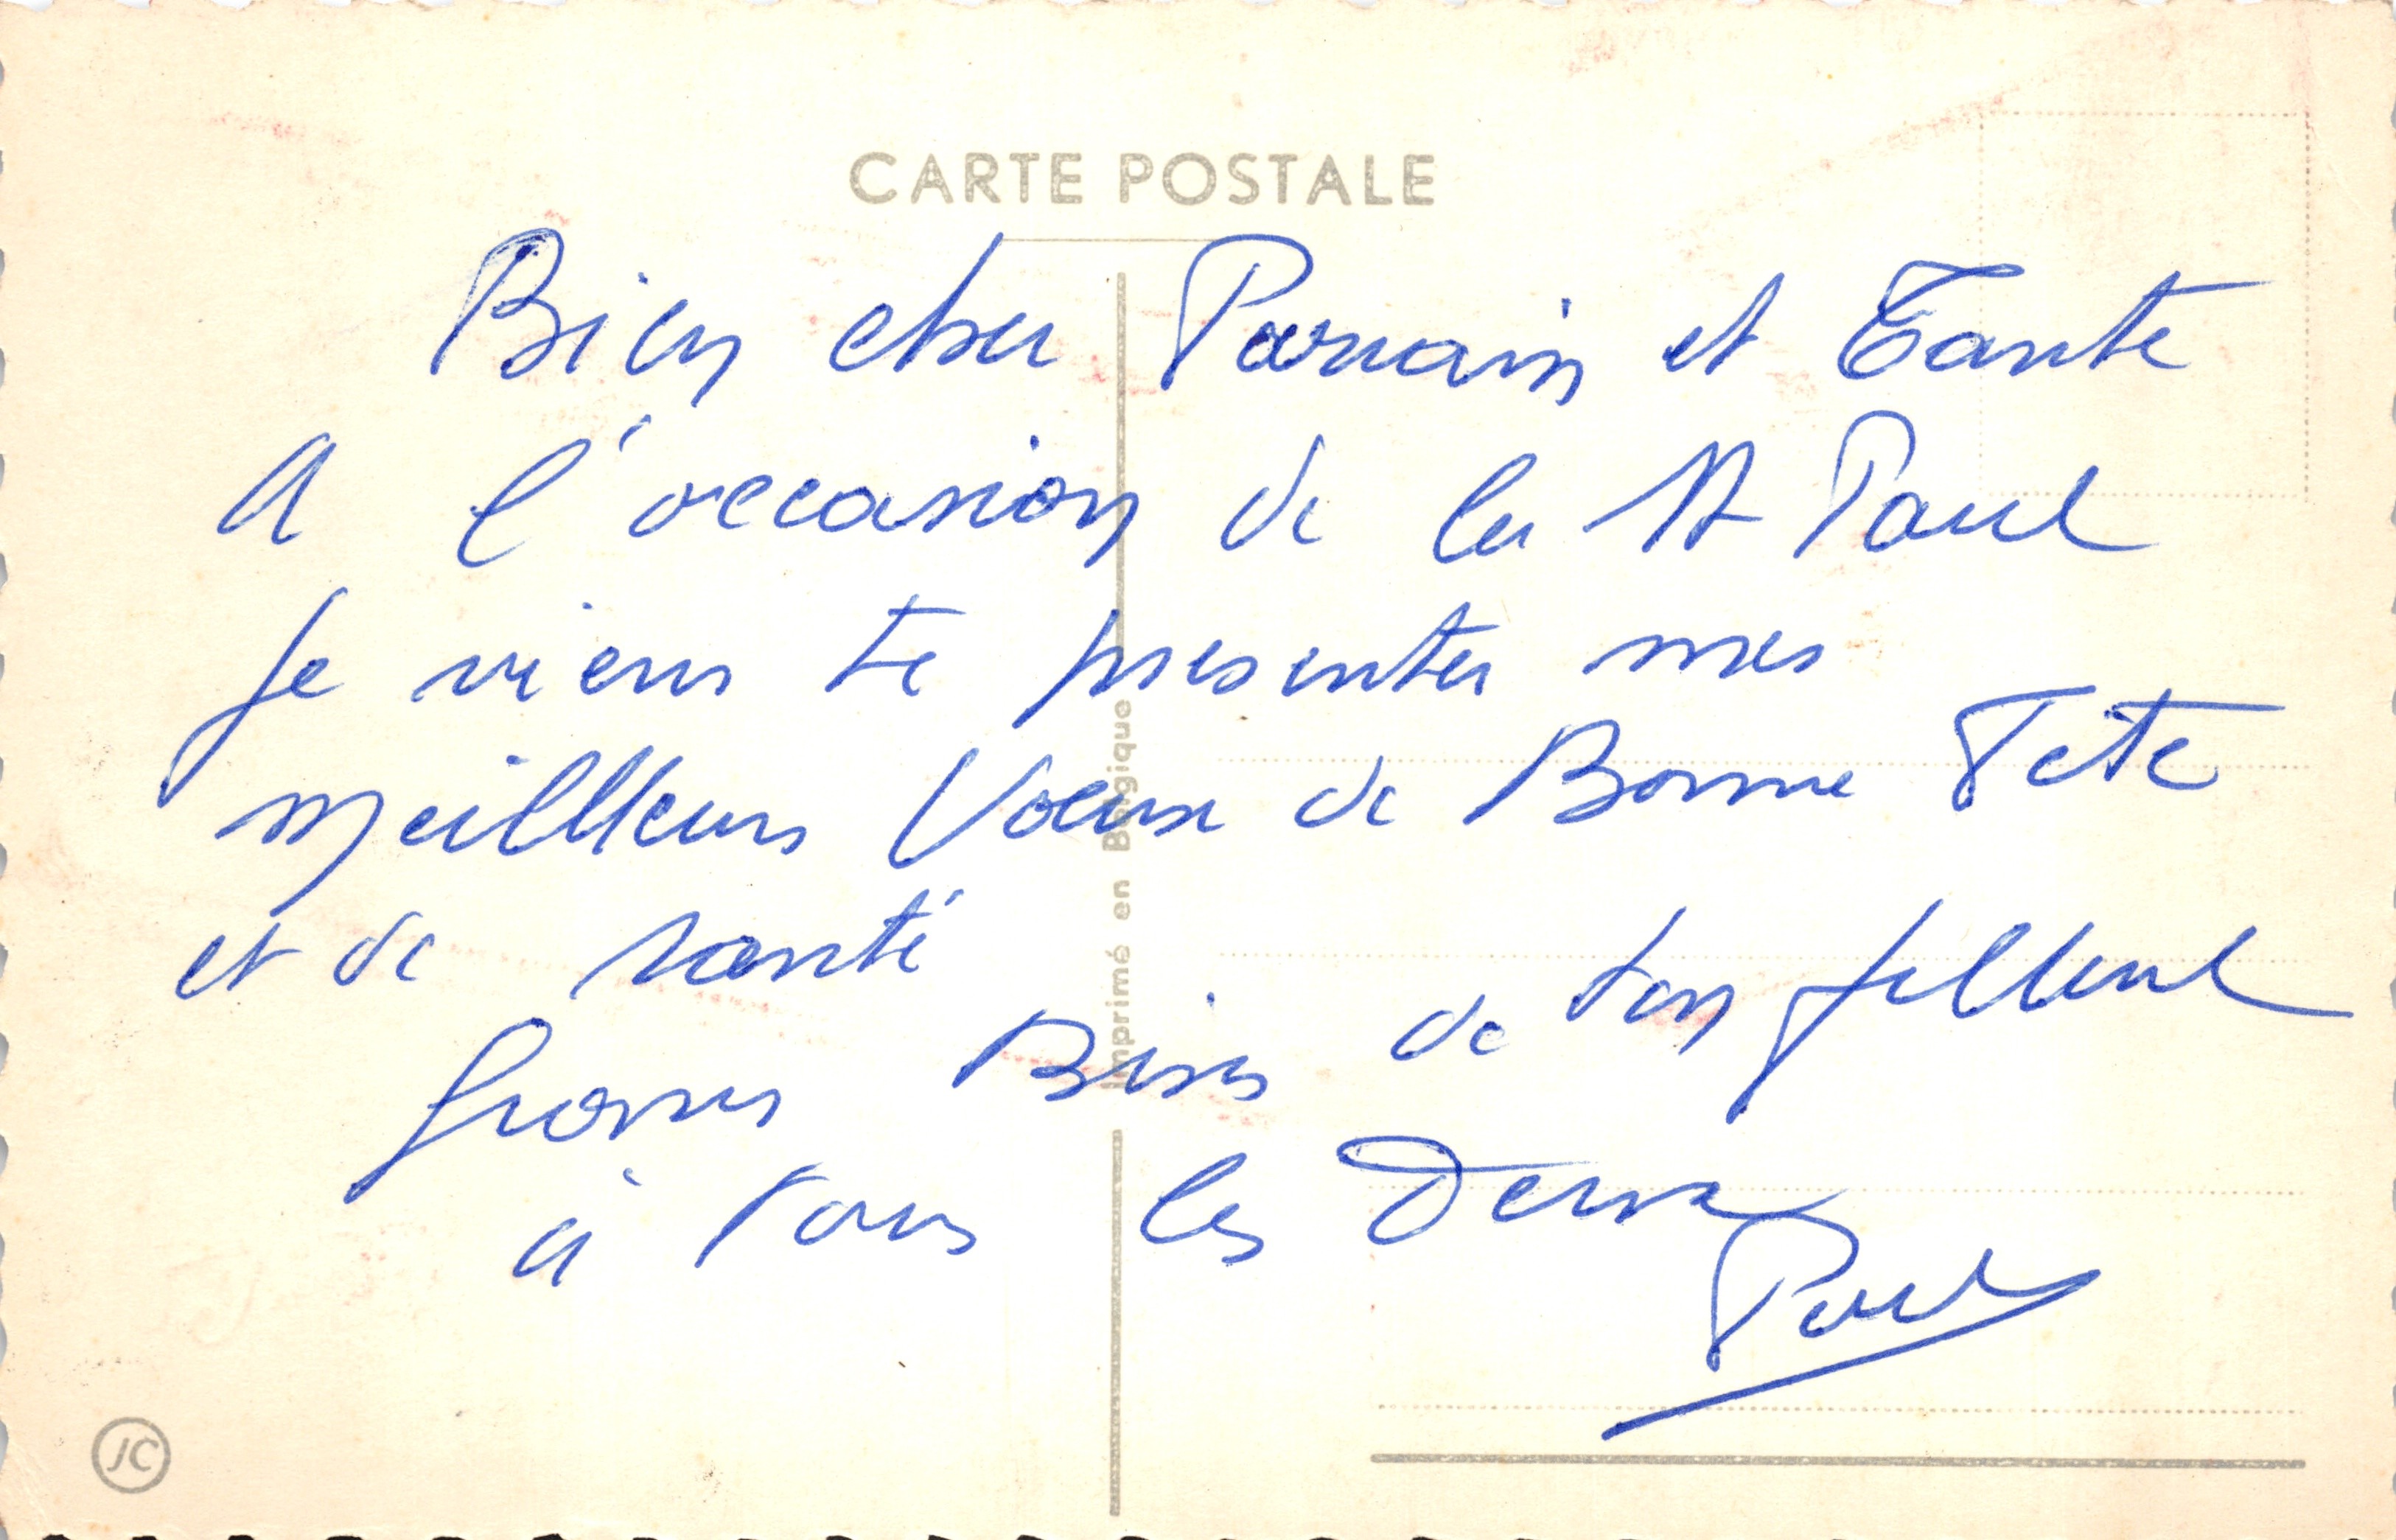 CARTE POSTALE
Bien cher Parrain et Tante
A l'occasion de la St Paul
Je viens te presenter mes
meilleurs Voeux de Bonne Fete
et de santé
de ton filleul
Gros Bises
à tous les Deux
Paul
Imprimé en Belgique
JC